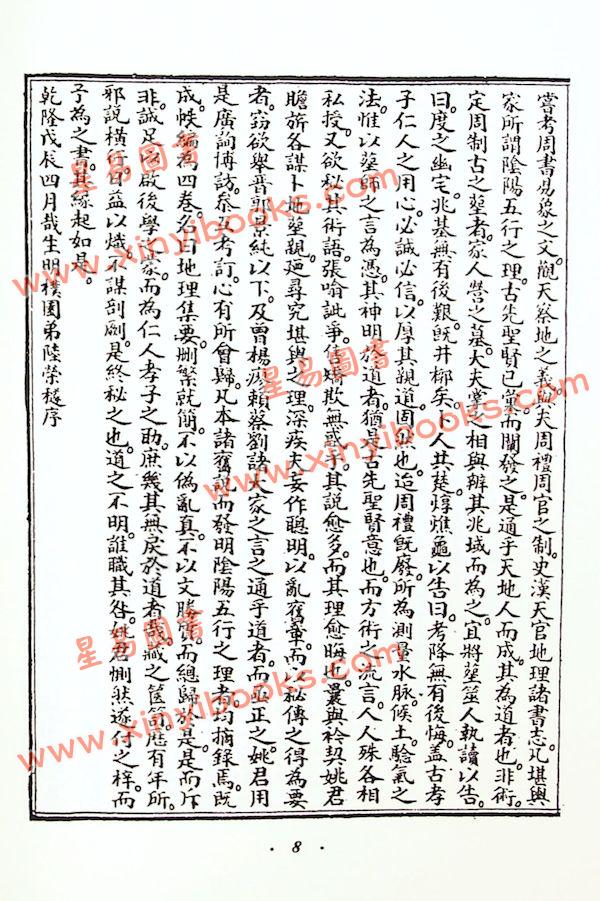 嘗考周書易象之文。觀天察地之義。與夫周禮周官之制。史漢天官地理諸書志。凡堪輿
家所謂陰陽五行之理。古先聖賢已彙而闡發之。是通乎天地人而成。其為道者也。非術。
定周制古之塟者。家人營之。墓大夫掌之。相與辨其兆域而為之。宜將塟筮人執讀以告。
曰度之幽宅。兆基無有後艱。旣井槨矣。卜人共楚焞燋龜以告曰。考降無有後悔。蓋古孝
子仁人之用心。必誠必信。以厚其親。道固然也。迨周禮旣廢。所為測量水脉。候土驗氣之
法。惟以塟師之言為憑。其神明於道者。猶是古先聖賢意也。而方術之流。言人人殊。各相
私授。又欲秘其術。語張喻詭。爭信矯欺無惑乎。其說愈多。而其理愈晦也。曩與衿契姚君
瞻旂各謀卜地塟親。𢌞尋究堪輿之理。深疾夫妄作聰明以亂舊章。而以秘傳之得為要
者。竊欲舉晉郭景純以下。及曾楊廖賴蔡劉諸大家之言之通乎道者。而亟正之。姚君用
是廣詢博訪。叅互考訂。心有所會歸。凡本諸舊說而發明陰陽五行之理者。均摘錄焉。旣
成帙。編為四卷。名曰地理集要。刪繁就簡。不以偽亂真。不以文勝質。而總歸於是。是而斥
非。誠足以啟後學之家。而為仁人孝子之助。庶幾其無戾於道者哉。藏之篋笥。歷有年所。
邪說橫行。日益以熾。不謀剞劂。是終秘之也。道之不明。誰職其咎。姚君惻然。遂付之梓。而
予為之書。其緣起如是。
乾隆戊辰四月哉生明樸園弟陸榮𣚴序
· 8 ·
星易圖書
www.xinyibooks.com
星易圖書
www.xinyibooks.com
星易圖書
www.xinyibooks.com
星易圖書
www.xinyibooks.com